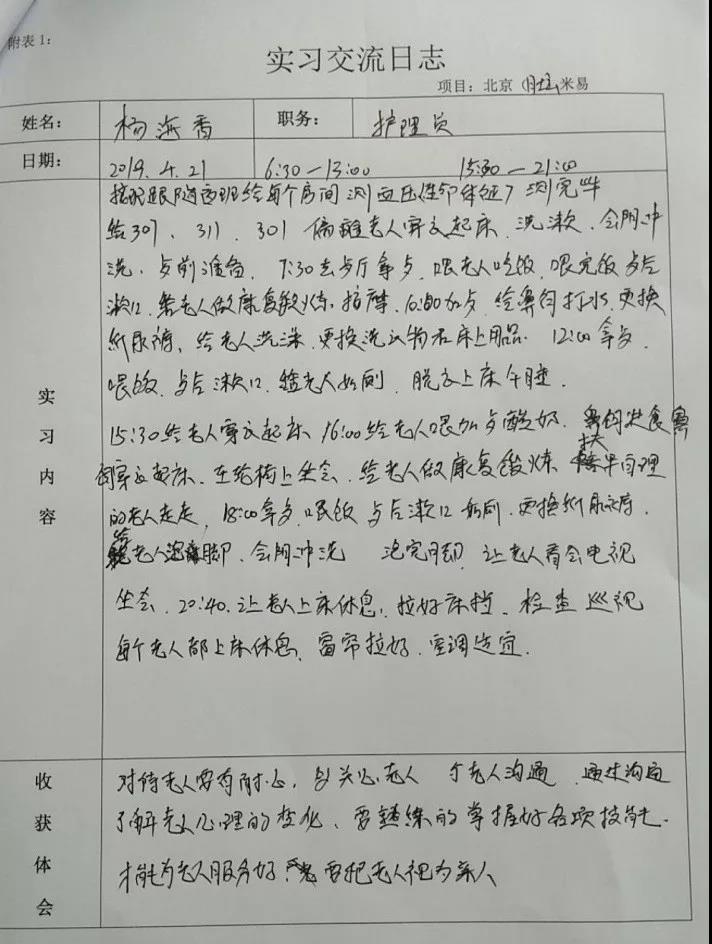 附表1:
实习交流日志
项目：北京 米易
姓名： 杨海香 职务： 护理员
日期： 2019.4.21 6:30—13:00 15:30—21:00
实习内容
跟随 班给每个房间测血压 测完毕
给307、311、301偏瘫老人穿衣起床、洗漱、会阴冲
洗、 前准备、7:30去 厅拿 、喂老人吃饭、喂完饭 后
漱口、给老人做康复锻炼、按摩、10:00加 、给鼻饲打水、更换
纸尿裤、给老人洗澡、更换洗衣物和床上用品、12:00拿 、
喂饭、 后漱口、给老人如厕、脱衣上床午睡.
15:30给老人穿衣起床 16:00给老人喂加 酸奶、鼻饲进食鼻
饲穿衣起床、在轮椅上坐会、给老人做康复锻炼 扶半自理
的老人走走、18:00拿 、喂饭 后漱口 如厕、更换纸尿裤、
给老人泡脚、会阴冲洗 泡完脚 让老人看会电视
坐会、20:40.让老人上床休息、拉好床档、检查巡视
每个老人都上床休息、窗帘拉好、空调适宜.
收获体会
对待老人要有耐心, 关心老人 老人沟通 通过沟通
了解老人心理的变化、要熟练的掌握好各项技能.
才能为老人服务好 要把老人视为亲人